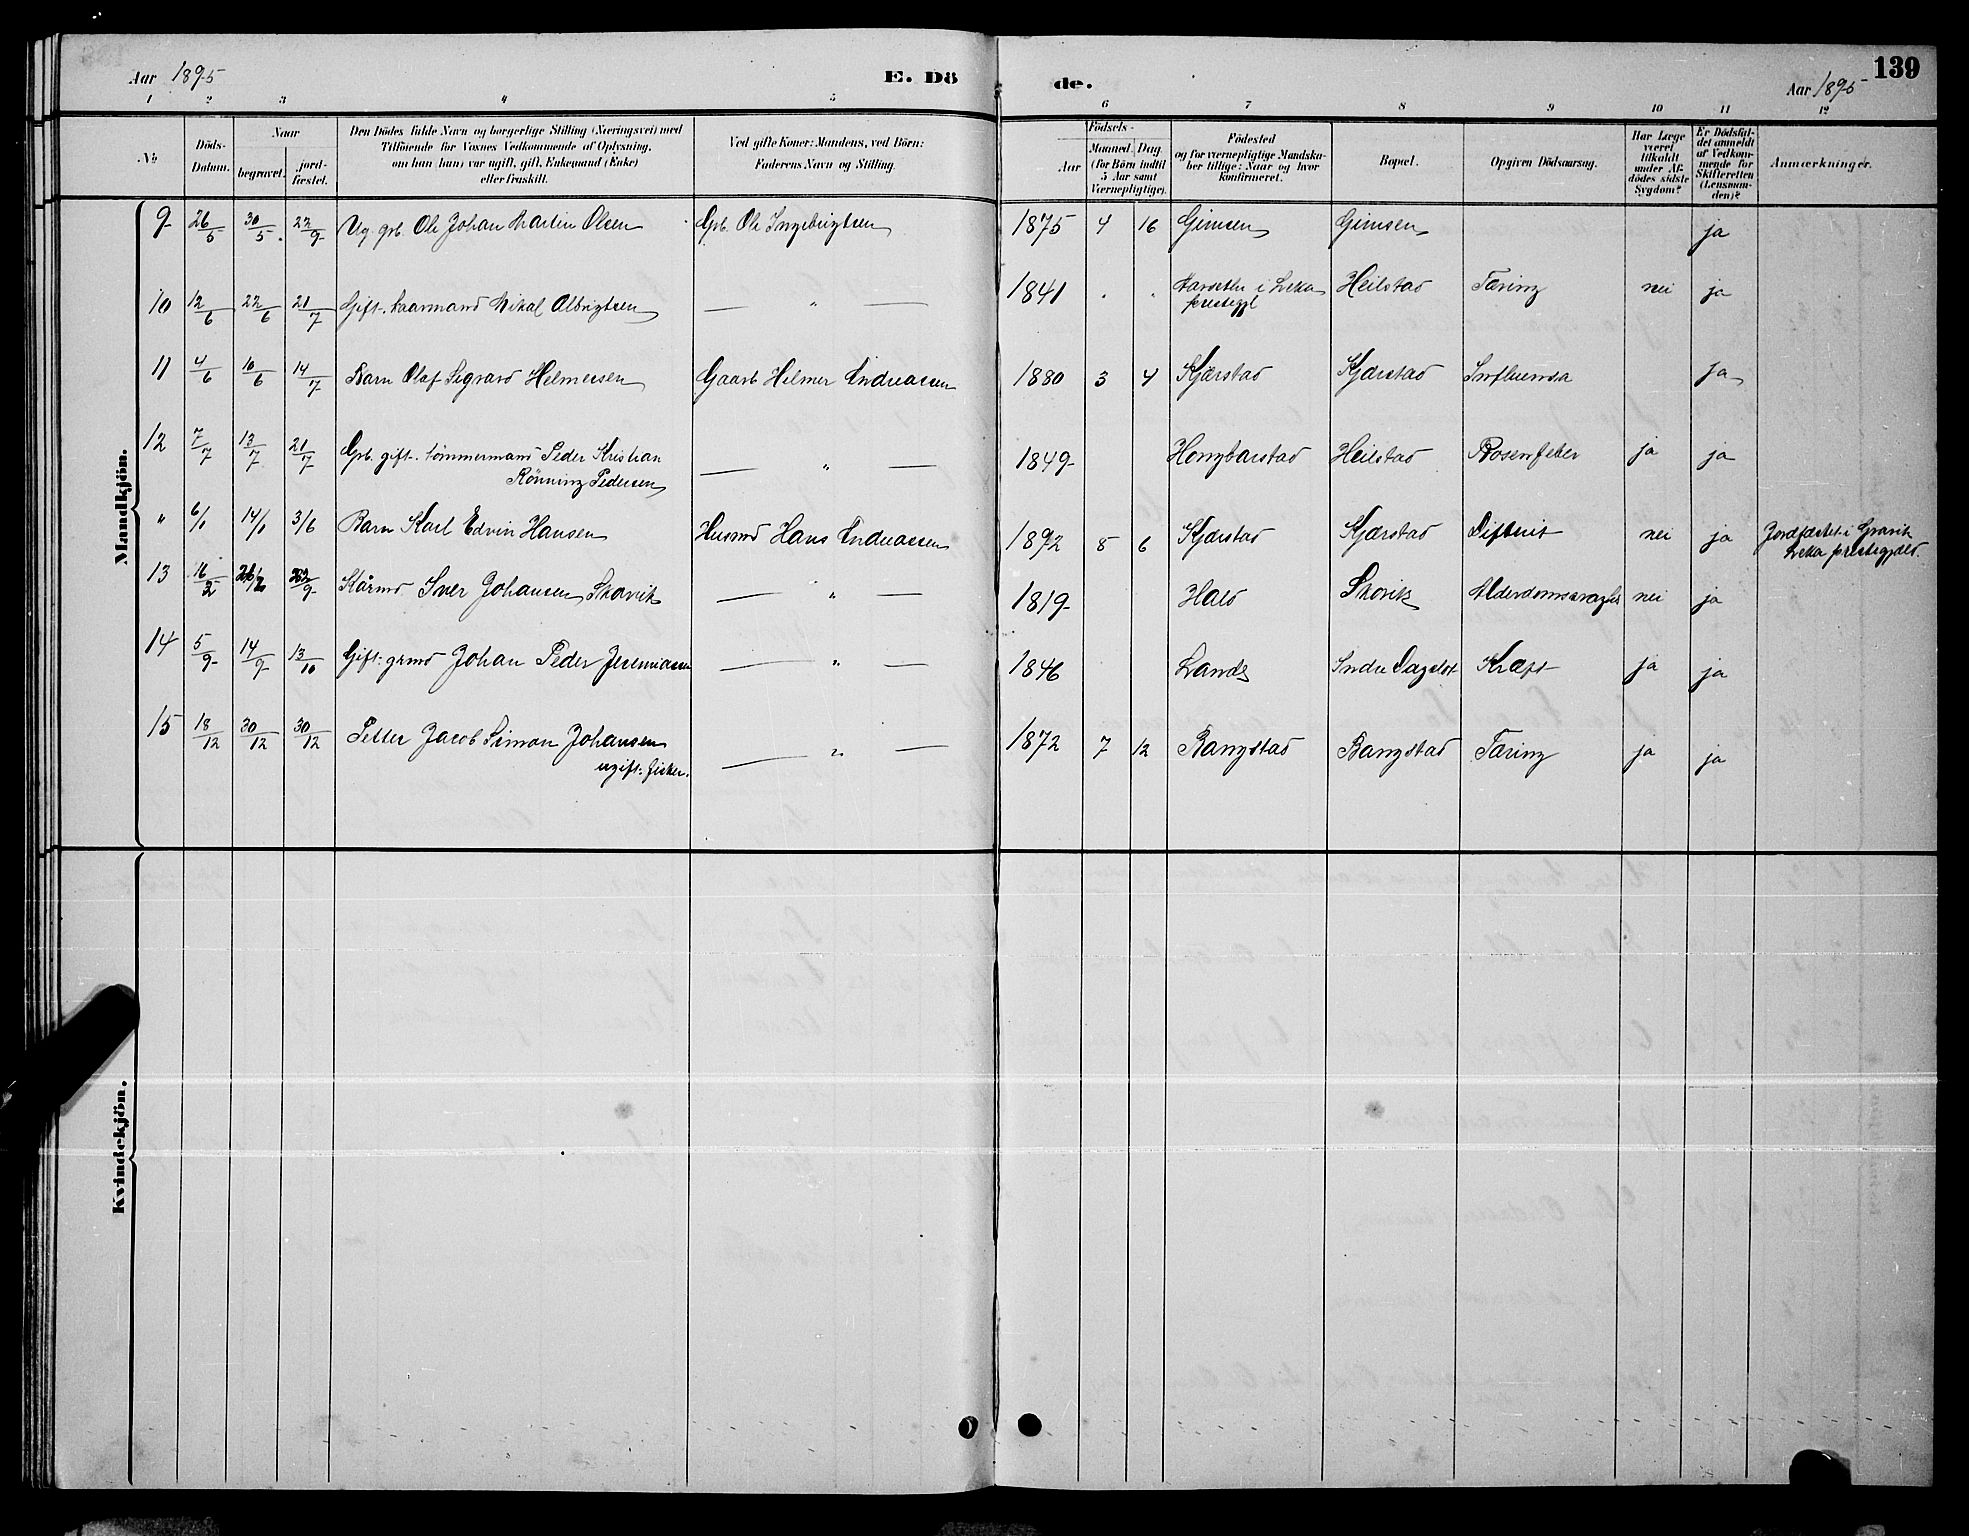 139
Aar 1895
E. Dö
de.
Aar 1895
1 2 3 4 5 6 7 8 9 10 11 12
No
Döds-
Datum.
Naar
begravet.
jord-
fæstet.
Den Dödes fulde Navn og borgerlige Stilling (Næringsvei) med
Tilföiende for Voxnes Vedkommende af Oplysning,
om han (hun) var ugift, gift, Enkemand (Enke)
eller fraskilt.
Ved gifte Koner: Mandens, ved Börn:
Faderens Navn og Stilling.
Födsels-
Aar
Maaned.
Dag
(for Börn indtil
5 Aar samt
Værnepligtige).
Födested
og for værnepligtige Mandska-
ber tillige: Naar og hvor
konfirmeret.
Bopæl.
Opgiven Dödsaarsag.
Har Læge
været
tilkaldt
under Af-
dödes sidste
Sygdom?
Er Dödsfal-
det anmeldt
af Vedkom-
mende for
Skifteretten
(Lensman-
den)?
Anmærkninger.
Mandkjön.
9 26/5 30/5 22/9 Ug. grb. Ole Johan Martin Olsen Grb. Ole Ingebrigtsen 1875 4 16 Gimsen Gimsen ja
10 12/6 22/6 21/7 Gift. kaarmand Mikal Albrigtsen — " — 1841 " " i Leka Heilstad Tæring nei ja
prestegjl
11 4/6 10/6 14/7 Barn Olaf Sigvard Helmersen Gaarb Helmer Andreassen 1880 3 4 Kjærstad Kjærstad Influensa ja
12 7/7 13/7 21/7 Grb. gift. tömmermand Peder Kristian — " — 1849 Hongbarstad Heilstad Rosenfeber ja ja
Rönning Pedersen
" 6/1 14/1 3/6 Barn Karl Edvin Hansen Husmd Hans Andreassen 1892 8 6 Kjærstad Kjærstad Difterit nei ja Jordfæstet i Gravik
Leka prestegjeld.
13 16/2 Kårmd Iver Johansen Skavik — " — 1819 Hald Skavik Alderdomssvaghed nei ja
14 5/9 14/9 13/10 Gift: grmd Johan Peder Jeremiassen — " — 1846 Lande Indre Kræft ja ja
15 18/12 30/12 30/12 Petter Jacob Simon Johansen — " — 1872 7 12 Bangstad Bangstad Tæring ja ja
ugift: fisker.
Kvindekjön.